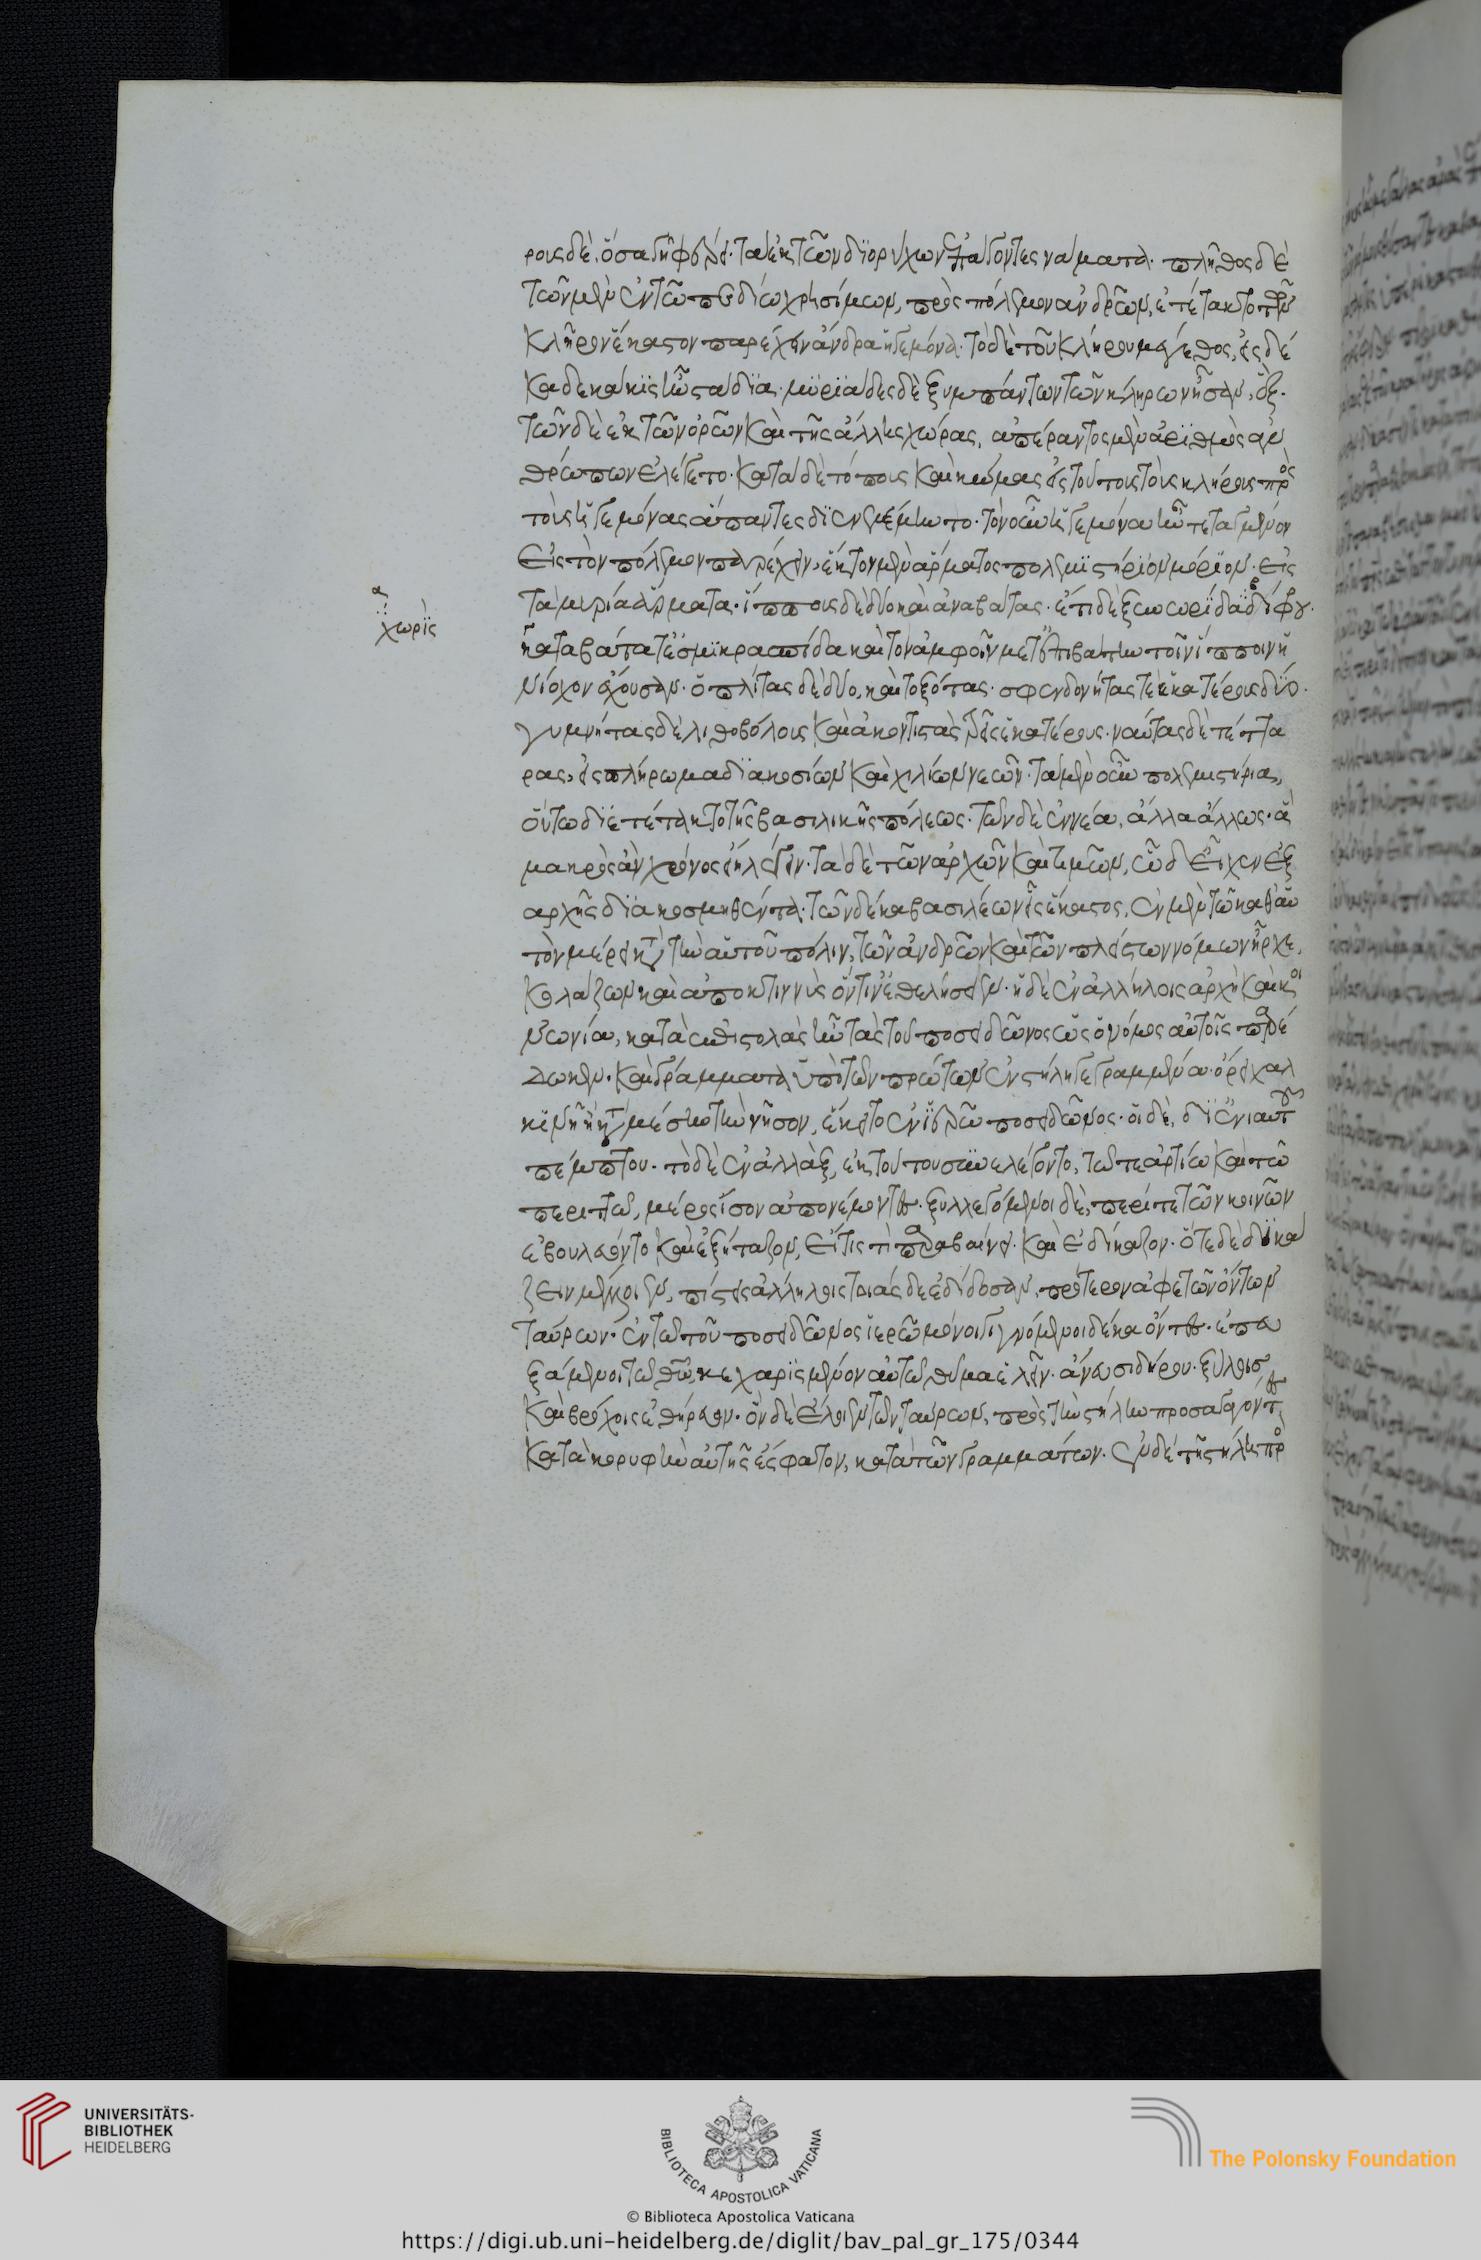 ρους δὲ, ὅσα γῆ φέρει. τὰ ἐκ τῶν διορύχων ἐπάγοντες νάματα. πλῆθος δὲ
τῶν μὲν ἐν τῶ πεδίω χρησίμων, πρὸς πόλεμον ἀνδρῶν, ἐτέτακτο τὸν
κλῆρον ἕκαστον παρέχειν ἄνδρα ἡγεμόνα. τὸ δὲ τοῦ κλήρου μέγεθος, εἰς δέ
κα δεκάκις ἦν στάδια. μυριάδες δὲ ξυμπάντων τῶν κλήρων ἦσαν, ἕξ.
τῶν δὲ ἐκ τῶν ὀρῶν καὶ τῆς ἄλλης χώρας, ἀπέραντος μὲν ἀριθμὸς ἀν
θρώπων ἐλέγετο. κατὰ δὲ τόπους καὶ κώμας εἰς τούτους τοὺς κλήρους πρὸς
τοὺς ἡγεμόνας ἅπαντες διενενέμηντο. τὸν οὖν ἡγεμόνα ἦν τεταγμένον
εἰς τὸν πόλεμον παρέχειν, ἕκτον μὲν ἅρματος πολεμιστηρίου μόριον. εἰς
τὰ μυρία ἅρματα. ἵππους δὲ δύο καὶ ἀναβάτας. ἔτι δὲ ξυνωρίδα δίφρου
καταβάτα τε σμικρασπίδα καὶ τὸν ἀμφοῖν μετ' ἐπιβάτην τοῖν ἵπποιν ἡ
νίοχον ἔχουσαν. ὁπλίτας δὲ δύο, καὶ τοξότας. σφενδονήτας τε ἑκατέρους δύο.
γυμνήτας δὲ λιθοβόλους καὶ ἀκοντιστὰς τρεῖς ἑκατέρους. ναύτας δὲ τέττα
ρας, εἰς πλήρωμα διακοσίων καὶ χιλίων νεῶν. τὰ μὲν οὖν πολεμιστήρια,
οὕτω διετέτακτο τῆς βασιλικῆς πόλεως. τῶν δὲ ἐννέα, ἄλλα ἄλλως. ἃ
μακρὸς ἂν χρόνος εἴη λέγειν. τὰ δὲ τῶν ἀρχῶν καὶ τιμῶν, ὧδ' εἶχεν ἐξ
ἀρχῆς διακοσμηθέντα. τῶν δέκα βασιλέων εἷς ἕκαστος, ἐν μὲν τῶ καθ' αὑ
τὸν μέρει κατὰ τὴν αὑτοῦ πόλιν, τῶν ἀνδρῶν καὶ τῶν πλείστων νόμων ἦρχε,
κολάζων καὶ ἀποκτιννὺς ὅντιν' ἐθελήσειεν. ἡ δὲ ἐν ἀλλήλοις ἀρχὴ καὶ κοι
νωνία, κατὰ ἐπιστολὰς ἦν τὰς τοῦ ποσειδῶνος ὡς ὁ νόμος αὐτοῖς παρέ
δωκεν. καὶ γράμματα ὑπὸ τῶν πρώτων ἐν στήλη γεγραμμένα. ὀρειχαλ
κίνη ἣ κατὰ μέσην τὴν νῆσον, ἔκειτο ἐν ἱερῶ ποσειδῶνος. οἱ δὲ, δι' ἐνιαυτοῦ
πέμπτου. τὸ δὲ ἐναλλὰξ, ἕκτου συνελέγοντο, τῶ τε ἀρτίω καὶ τῶ
περιττῶ, μέρος ἴσον ἀπονέμοντες. ξυλλεγόμενοι δὲ, περί τε τῶν κοινῶν
ἐβουλεύοντο καὶ ἐξήταζον, εἴ τίς τι παραβαίνει. καὶ ἐδίκαζον. ὅτε δὲ δικά
ζειν μέλλοιεν, πίστεις ἀλλήλοις τοιάσδε ἐδίδοσαν, πρότερον ἀφέτων ὄντων
ταύρων. ἐν τῶ τοῦ ποσειδῶνος ἱερῶ μόνοι γιγνόμενοι δέκα ὄντες. ἐπευ
ξάμενοι τῶ θεῶ, κεχαρισμένον αὐτῶ θῦμα ἑλεῖν. ἄνευ σιδήρου. ξύλοις
καὶ βρόχοις ἐθήρευον. ὃν δὲ ἕλοιεν τῶν ταύρων, πρὸς τὴν στήλην προσαγαγόντες
κατὰ κορυφὴν αὐτῆς ἔσφαττον, κατὰ τῶν γραμμάτων. ἐν δὲ τῆ στήλη πρὸς
χωρὶς
UNIVERSITÄTS-
BIBLIOTHEK
HEIDELBERG
BIBLIOTECA APOSTOLICA VATICANA
The Polonsky Foundation
© Biblioteca Apostolica Vaticana
https://digi.ub.uni-heidelberg.de/diglit/bav_pal_gr_175/0344